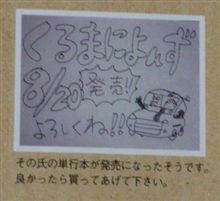 くるまによんず
8/20発売!
よろしくね!!
その氏の単行本が発売になったそうです。
良かったら買ってあげて下さい。